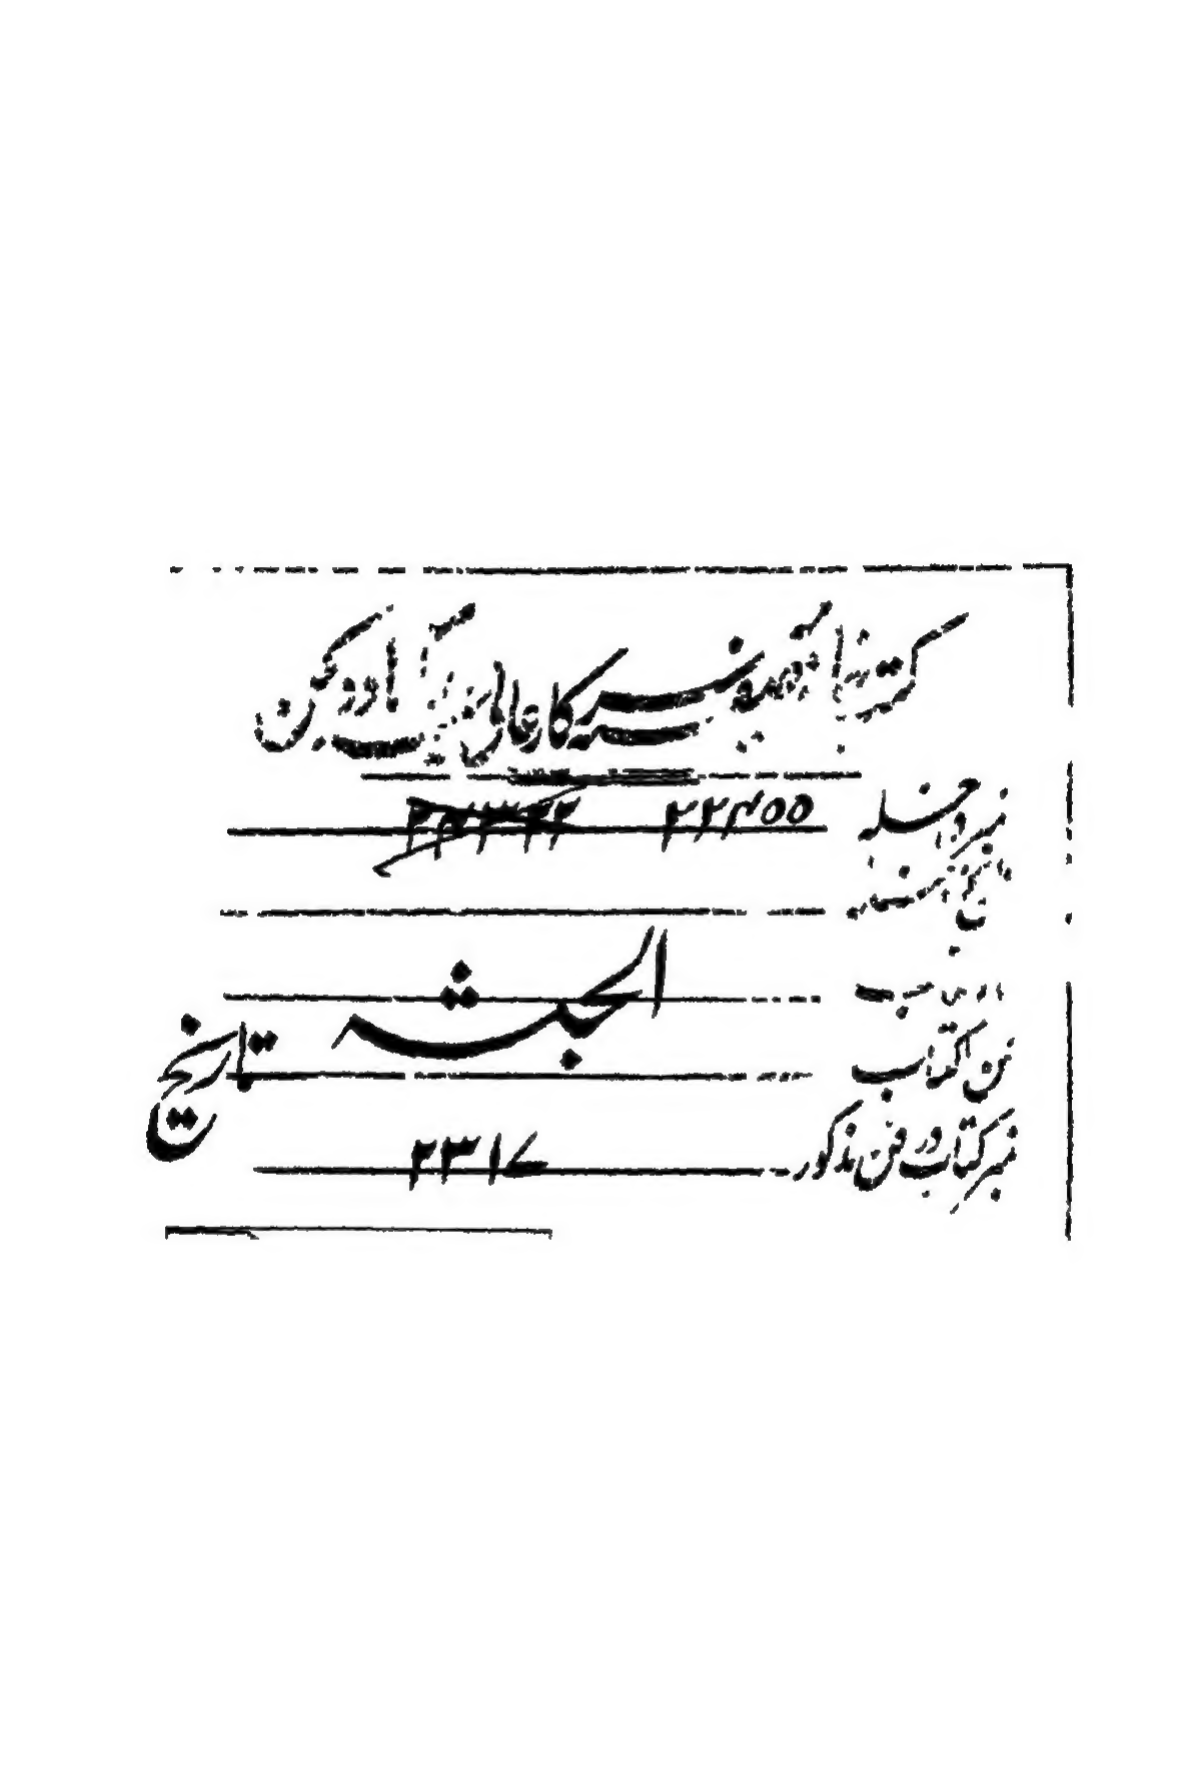 کتب خانہ آصفیہ سرکار عالی حیدرآباد دکن
نمبر داخلہ ۲۲۴۵۵
الحبشہ
فن کتاب تاریخ
نمبر کتاب در فن مذکور ۲۳۱۷